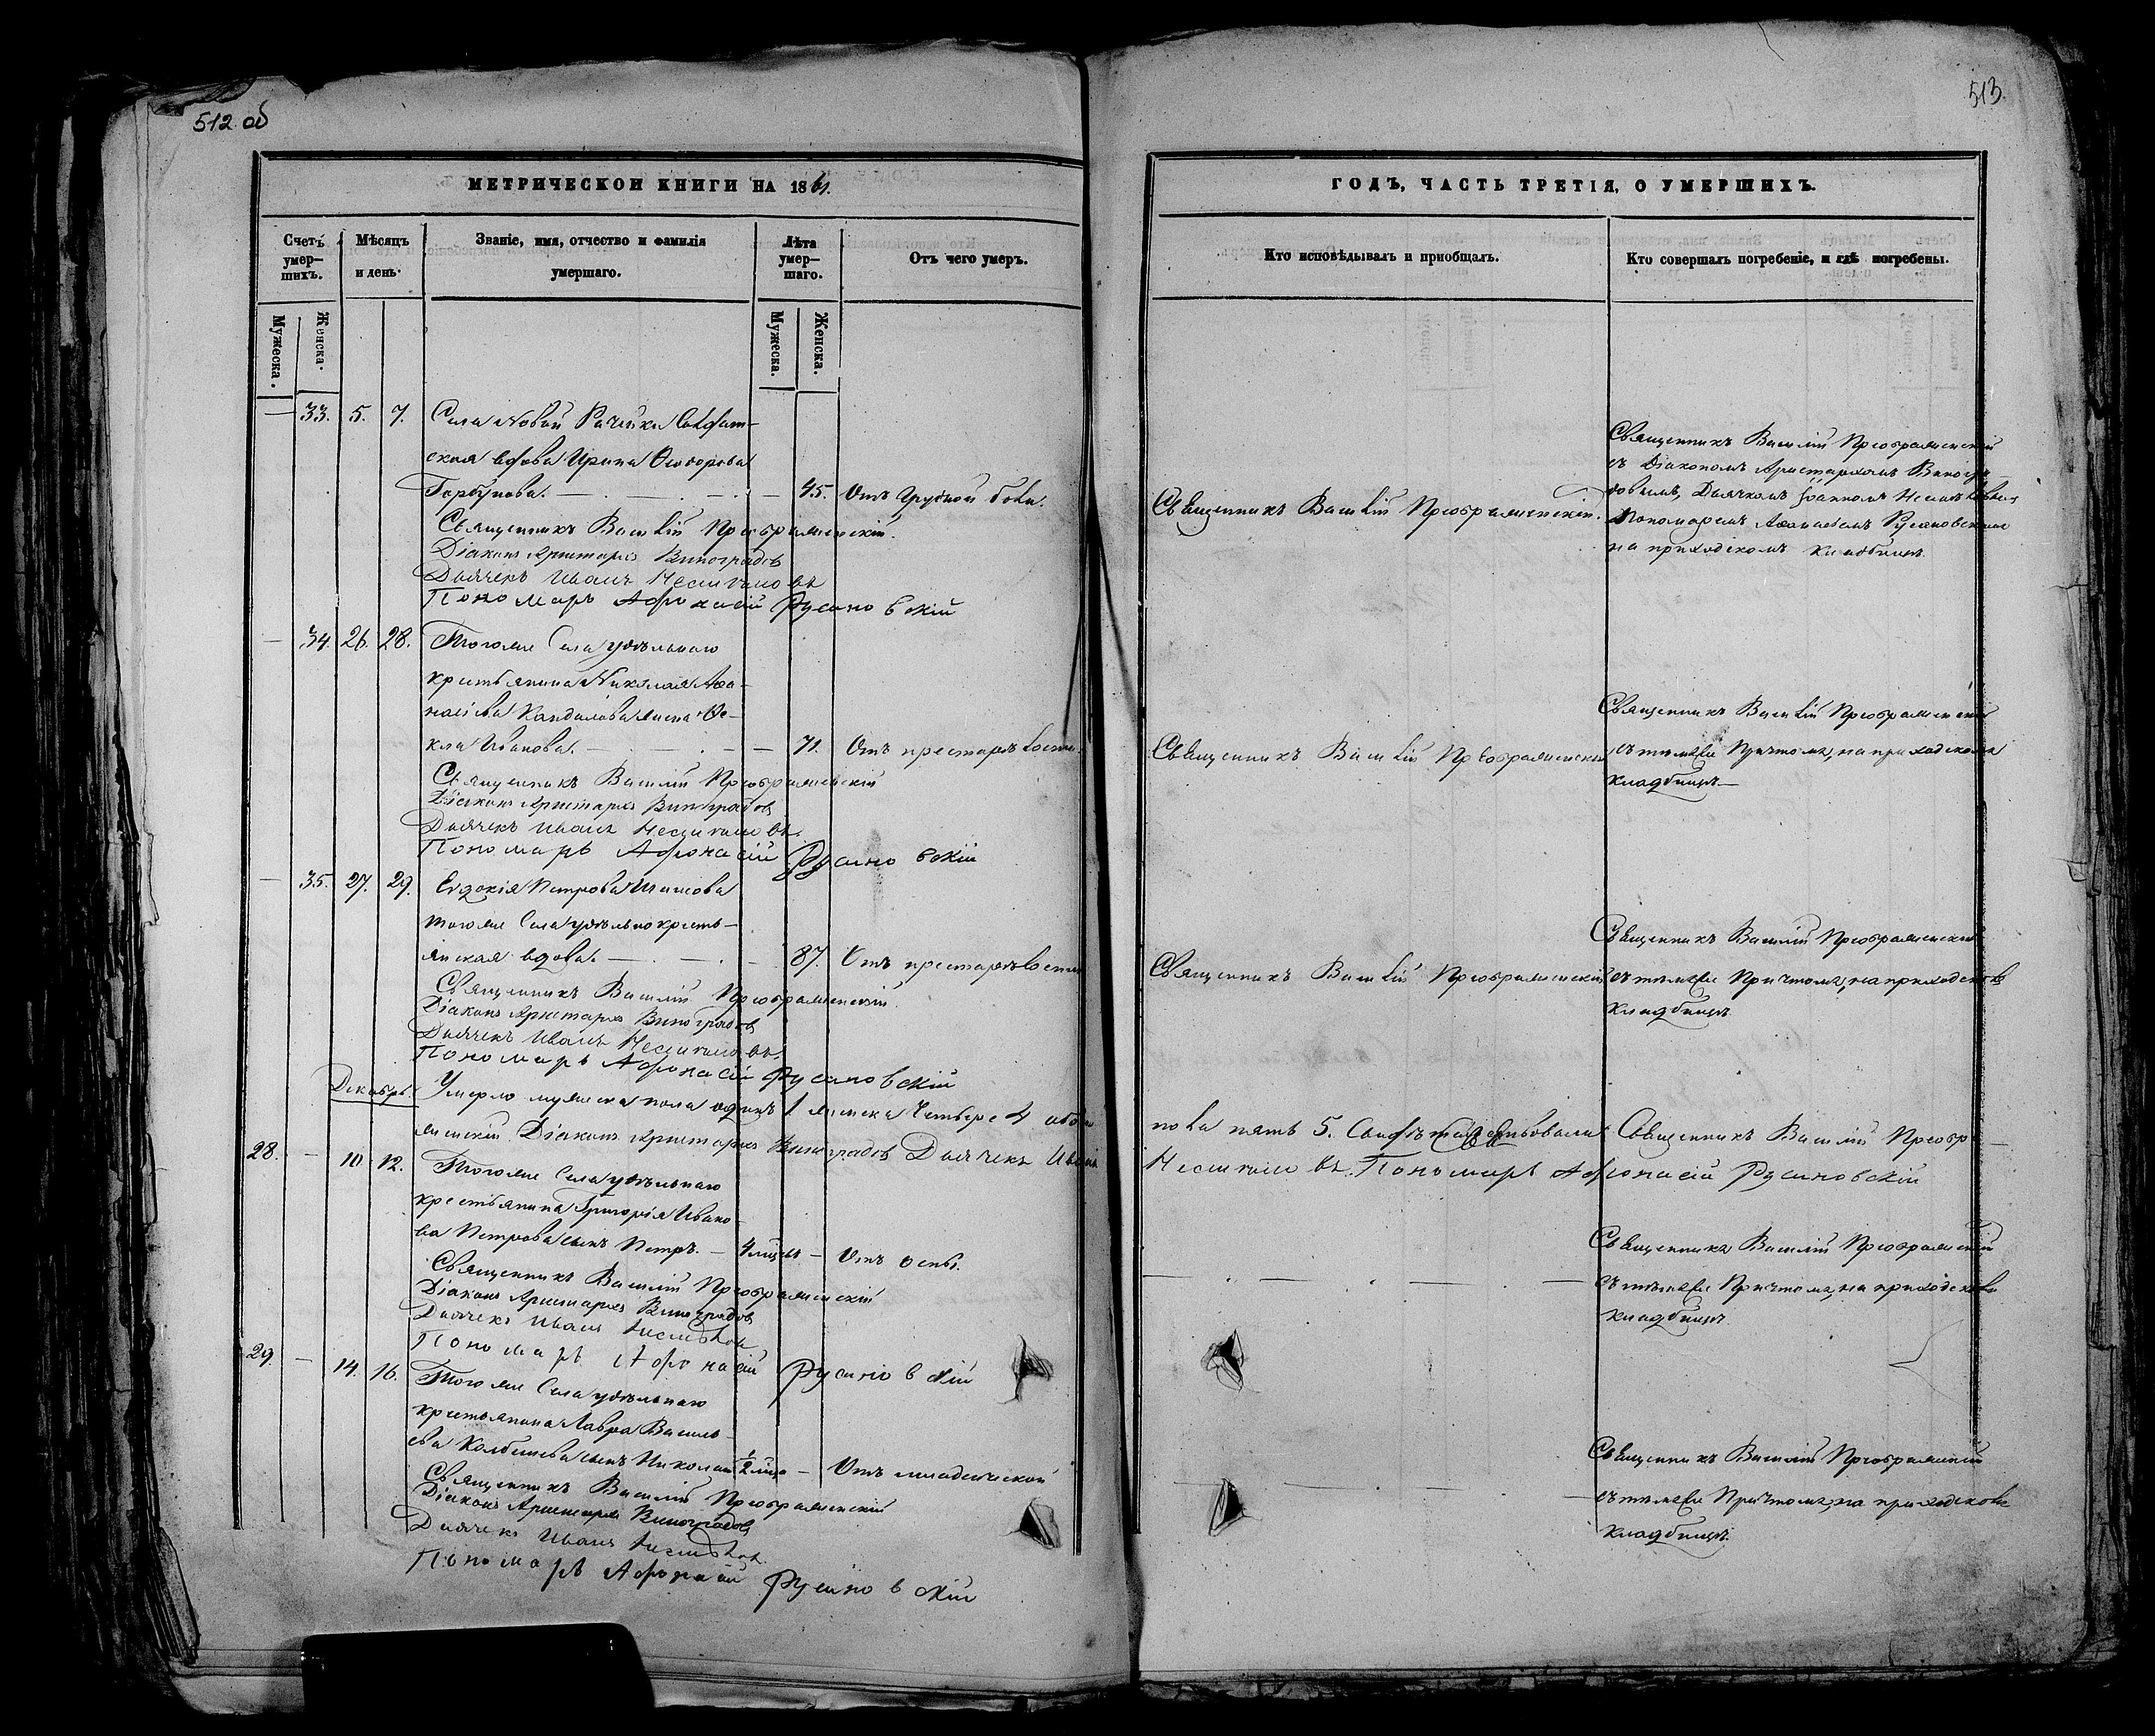 512 об
МЕТРИЧЕСКОЙ КНИГИ НА 1861.
Счетъ умер-шихъ.
Мѣсяцъ и день.
Званіе, имя, отчество и фамилія умершаго.
Лѣта умер-шаго.
Отъ чего умеръ.
Мужеска.
Женска.
Мужеска.
Женска.
— 33. 5. 7. Села Новой Рачейки Солдат-
ская вдова Ирина Ѳеодорова
Горбунова. — 45. Отъ грудной боли.
Священникъ Василій Преображенскій.
Діаконъ Аристархъ Виноградовъ
Дьячекъ Иванъ
Пономарь Афонасій Русановскій
— 34. 26. 28. Тогоже Села удѣльнаго
крестьянина Николая Аѳа-
насьева Кандалова жена Ѳе-
кла Иванова. — 71. Отъ престарѣлости.
Священникъ Василій Преображенскій
Діаконъ Аристархъ Виноградовъ
Дьячекъ Иванъ
Пономарь Афонасій Русановскій
— 35. 27. 29. Евдокія Петрова
тогоже Села удѣльно крестъ-
янская вдова. — 87. Отъ престарѣлости
Священникъ Василій Преображенскій.
Діаконъ Аристархъ Виноградовъ
Дьячекъ Иванъ
Пономарь Афонасій Русановскій
Декабрь. Умерло мужеска пола одинъ 1 женска четыре 4 обоего
женскій Діаконъ Аристархъ Виноградовъ Дьячекъ Иванъ
28. — 10. 12. Тогоже Села удѣльнаго
крестьянина Григорія Ивано-
ва Петрова сынъ Петръ. — 4 мѣсяц. — Отъ оспы.
Священникъ Василій Преображенскій
Діаконъ Аристархъ Виноградовъ
Дьячекъ Иванъ
Пономарь Афонасій Русановскій
29. — 14. 16. Тогоже Села удѣльнаго
крестьянина Лавра Василь-
ева сынъ Николай 1/2 мѣся — Отъ младенческой
Священникъ Василій Преображенскій
Діаконъ Аристархъ Виноградовъ
Дьячекъ Иванъ
Пономарь Афонасій Русановскій
513.
ГОДЪ, ЧАСТЬ ТРЕТІЯ, О УМЕРШИХЪ.
Кто исповѣдывалъ и приобщалъ.
Кто совершалъ погребеніе, и гдѣ погребены.
Священникъ Василій Преображенскій.
Священникъ Василій Преображенскій
съ Діакономъ Аристархомъ Виногра-
довымъ, Дьячкомъ Іоанномъ
Пономаремъ Аѳанасіемъ Русановскимъ
на приходскомъ кладбищѣ.
Священникъ Василій Преображенскій
Священникъ Василій Преображенскій
съ тѣмже Причтомъ, на приходскомъ
кладбищѣ—
Священникъ Василій Преображенскій
Священникъ Василій Преображенскій
съ тѣмже Причтомъ, на приходском
кладбищѣ
пола пять 5. Свидѣтельствовали Священникъ Василій Преобра-
Пономарь Афонасій Русановскій
Священникъ Василій Преображенскій
съ тѣмже Причтомъ, на приходском
кладбищѣ
Священникъ Василій Преображенскій
съ тѣмже Причтомъ, на приходском
кладбищѣ.